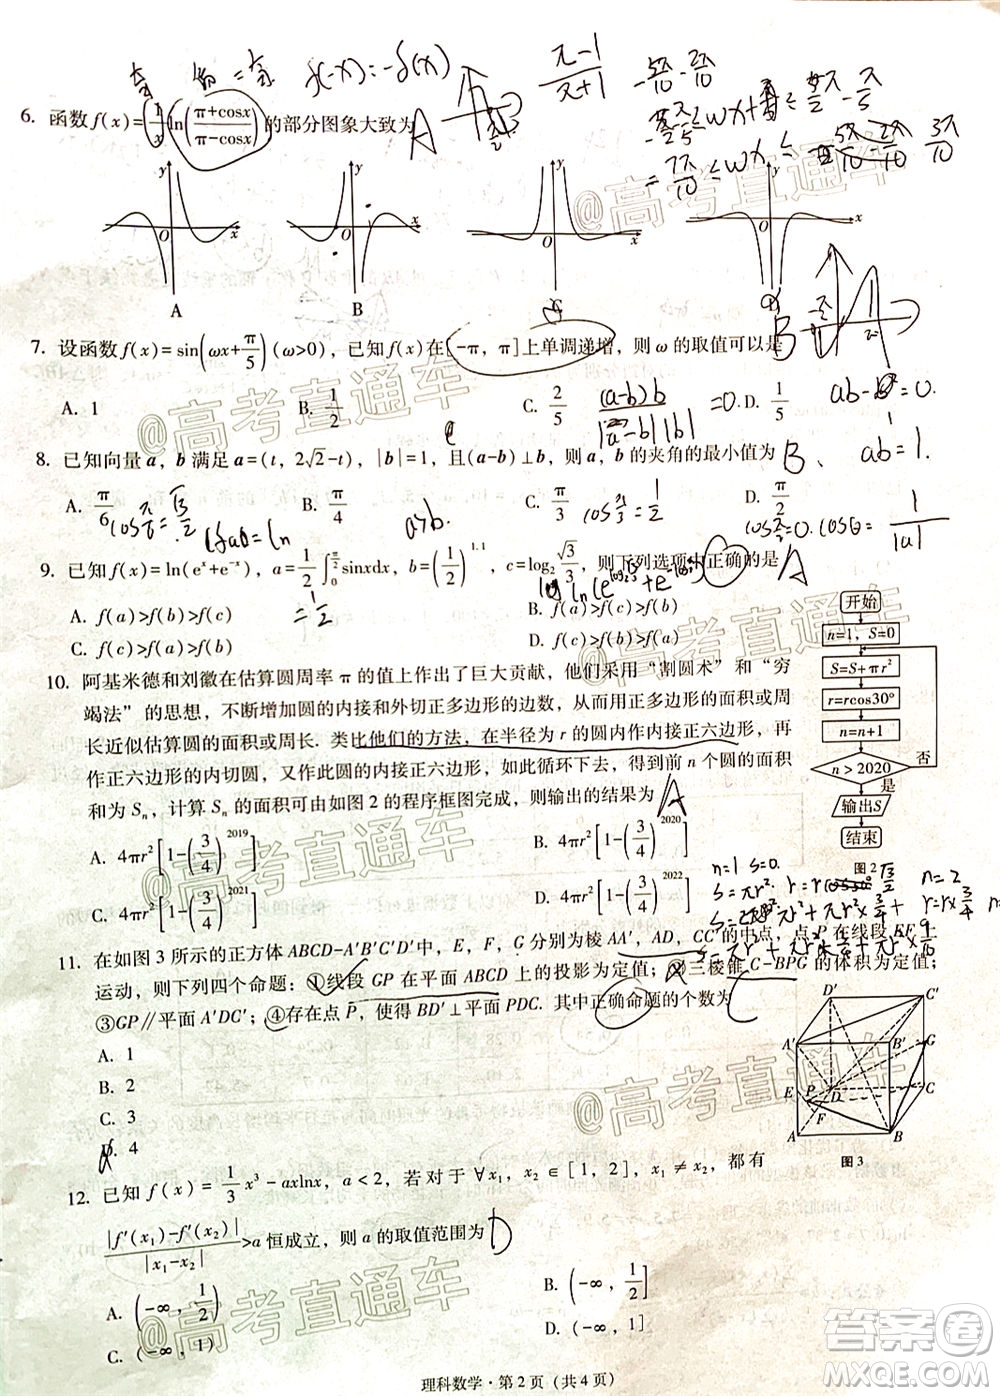 奇 偶 = 奇 f(-x)=-f(x)
6. 函数 f(x)=1/x ln((π+cosx)/(π-cosx))的部分图象大致为 A
A B C D
7. 设函数 f(x)=sin(ωx+π/5)(ω>0), 已知f(x)在[-π, π]上单调递增, 则 ω 的取值可以是 B
A. 1 B. 1/2 C. 2/5 D. 1/5
(a-b)b/|a-b||b| =0
ab-b²=0.
8. 已知向量 a, b 满足 a=(t, 2√2-t), |b|=1, 且(a-b)⊥b, 则 a, b 的夹角的最小值为 B
ab=1.
A. π/6 B. π/4 C. π/3 D. π/2
cosπ/6 √3/2 a>b. cosπ/3=1/2 cosπ/2=0. cosθ=1/|a|
9. 已知 f(x)=ln(eˣ+e⁻ˣ), a=1/2∫₀^(π/2) sinxdx, b=(1/2)^1.1, c=log₂ √3/3, 则下列选项中正确的是 A
A. f(a)>f(b)>f(c) B. f(b)>f(a)>f(c)
C. f(c)>f(a)>f(b) D. f(c)>f(b)>f(a)
10. 阿基米德和刘徽在估算圆周率 π 的值上作出了巨大贡献, 他们采用“割圆术”和“穷
竭法”的思想, 不断增加圆的内接和外切正多边形的边数, 从而用正多边形的面积或周
长近似估算圆的面积或周长. 类比他们的方法, 在半径为 r 的圆内作内接正六边形, 再
作正六边形的内切圆, 又作此圆的内接正六边形, 如此循环下去, 得到前 n 个圆的面积
和为 Sₙ, 计算 Sₙ 的面积可由如图 2 的程序框图完成, 则输出的结果为 A
A. 4πr²[1-(3/4)^2019] B. 4πr²[1-(3/4)^2020]
C. 4πr²[1-(3/4)^2021] D. 4πr²[1-(3/4)^2022]
开始
n=1, S=0
S=S+πr²
r=rcos30°
n=n+1
n>2020
否
是
输出S
结束
图 2
n=1 s=0.
11. 在如图 3 所示的正方体 ABCD-A′B′C′D′中, E, F, G 分别为棱 AA′, AD, CC′的中点, 点 P 在线段 EF 上
运动, 则下列四个命题: ①线段 GP 在平面 ABCD 上的投影为定值; ②三棱锥 C-BPG 的体积为定值;
③GP∥平面 A′DC′; ④存在点 P, 使得 BD′⊥平面 PDC. 其中正确命题的个数为 C
A. 1
B. 2
C. 3
D. 4
D′ C′
A′ B′ G
E P D C
F
A B
图 3
12. 已知 f(x)=1/3 x³-axlnx, a<2, 若对于 ∀x₁, x₂∈[1, 2], x₁≠x₂, 都有
|f′(x₁)-f′(x₂)|/|x₁-x₂|>a 恒成立, 则 a 的取值范围为 D
A. (-∞, 1/2) B. (-∞, 1/2]
C. (-∞, 1] D. (-∞, 1)
理科数学·第 2 页 (共 4 页)
@高考直通车
答案圈
MXQE.COM